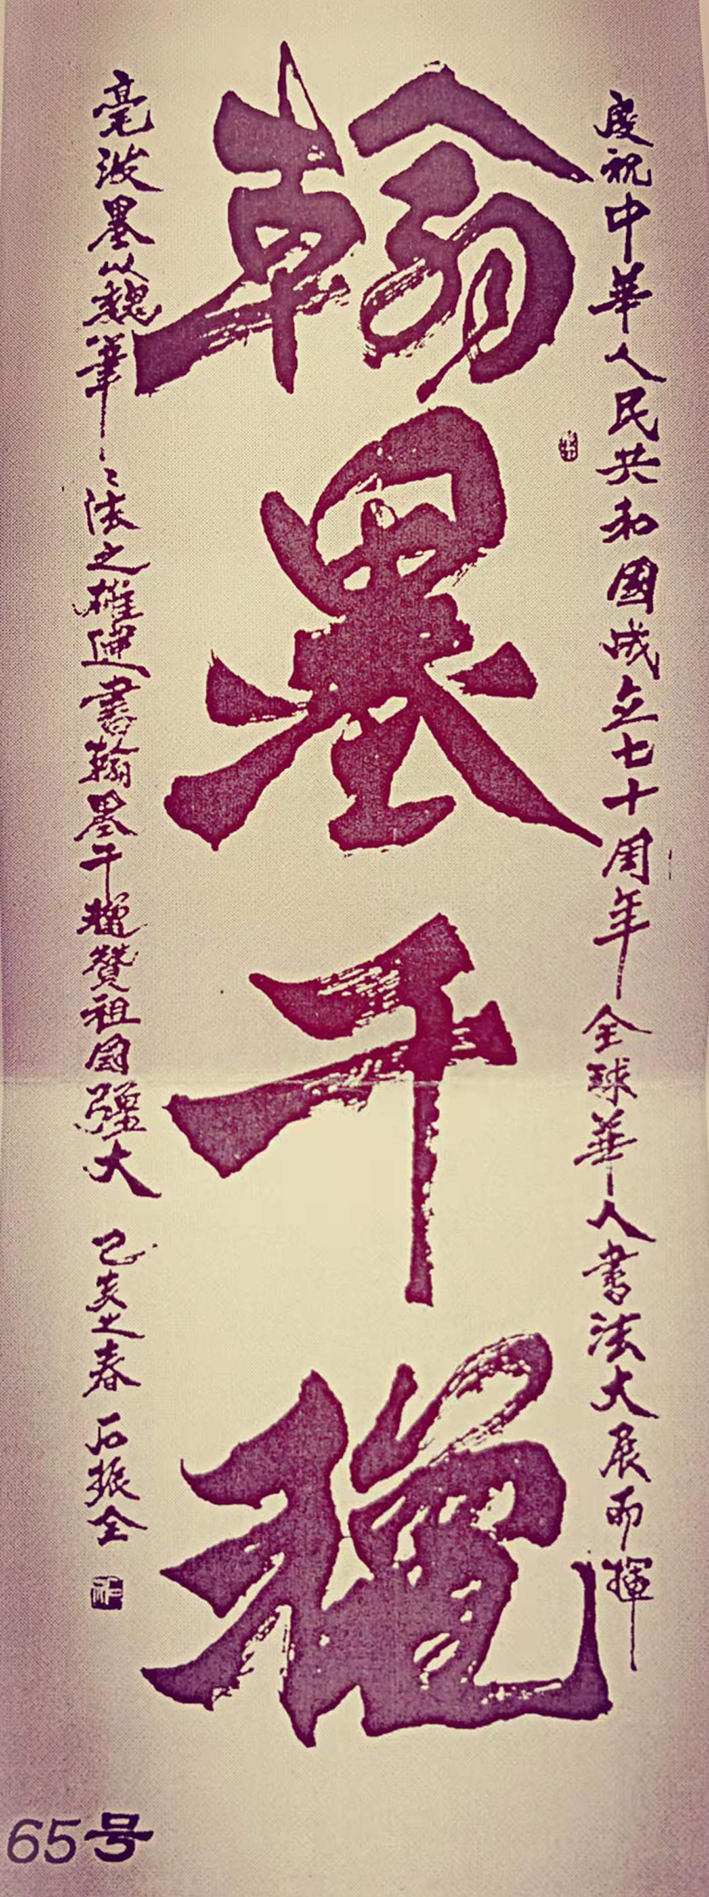 慶祝中華人民共和國成立七十周年全球華人書法大展而揮
翰墨千穐
毫泼墨以魏筆々法之雄書翰墨千穐贊祖國強大 己亥之春 石振全
65号